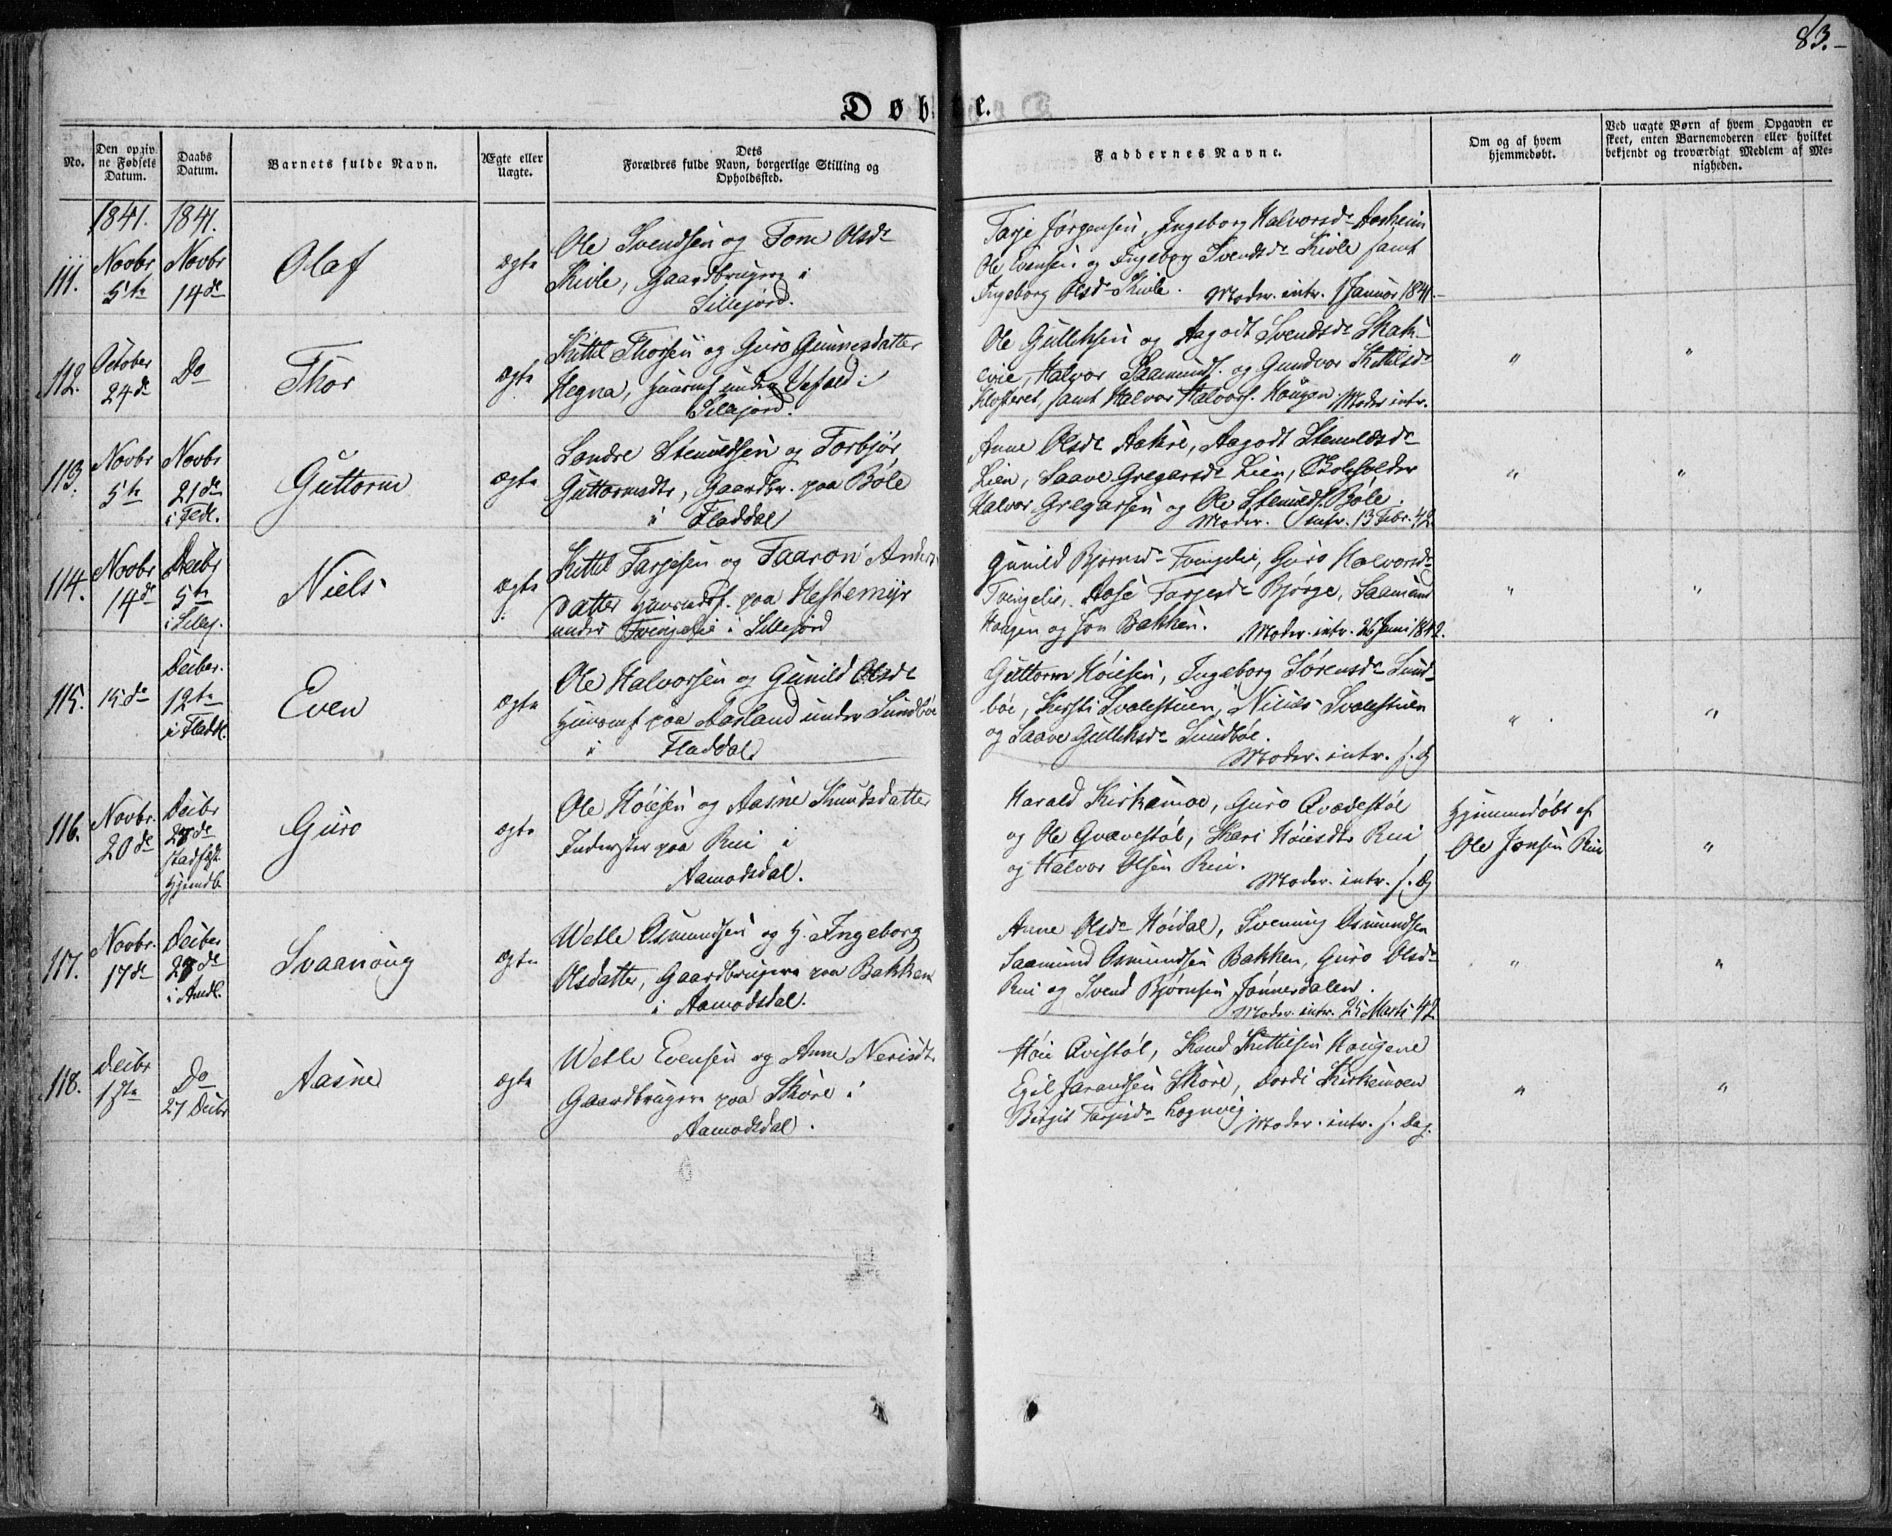 83.
Døbte.
No.
Den opgiv
ne Fødsels
Datum.
Daabs
Datum.
Barnets fulde Navn.
Ægte eller
Uægte.
Dets
Forældres fulde Navn, borgerlige Stilling og
Opholdssted.
Faddernes Navne.
Om og af hvem
hjemmedøbt.
Ved uægte Børn af hvem Opgaven er
skeet, enten Barnemoderen eller hvilket
bekjendt og troværdigt Medlem af Me-
nigheden.
1841.
1841.
111.
Novbr
5te
Novbr
14de
Olaf
ægte
Ole Svendsen og Tone Olsdr
Kivle, Gaardbrugere i
Sillejord.
Tarje Jørgensen, Ingeborg Halvorsdr Aasheim
Ole Evensen og Ingeborg Svendsdr Kivle samt
Ingeborg Olsdr Kivle. Moder. intr. 1 Januar 1841.
112.
October
24de
Do
Thor
ægte
Kittil Thorsen og Guro Gunnesdatter
Hegna, Huusmf under Uefald i
Sillejord.
Ole Gulliksen og Aagodt Svendsdr Skak-
evie, Halvor Saamunds. og Gundvor Kittilsdr
Klosteret, samt Halvor Halvors. Haugen. Moder intr.
"
"
113.
Novbr
5te
Novbr
21de
i Fldl.
Guttorm
ægte
Sondre Stenuldsen og Torbjør
Guttormsdtr, Gaardbr. paa Bøle
i Fladdal
Anne Olsdr Aakre, Aagodt Stenuldsdr
Lien, Saave Gregarsdr Lien, Skoleholder
Halvor Gregarsen og Ole Stenulds. Bøle.
Moder. intr. 13 Febr. 42.
"
"
114.
Novbr
14de
Deibr
5te
i Sillej.
Niels
ægte
Kittil Tarjesen og Taaron Anders
datter Huusmdsf. paa Hestemyr
under Tvenjelie i Sillejord
Gunild Bjørnsdr Tvinjelie, Guro Halvorsdr
Tvingelie, Aase Tarjesdr Bjørge, Saamund
Haugen og Jon Bakken. Moder. intr. 26 Juni 1842.
"
"
115.
15de
Deiber.
12te
i Fladdl.
Even
ægte
Ole Halvorsen og Gunild Olsdr
Huusmf paa Aasland under Sundbøe
i Fladdal
Guttorm Høiesen, Ingeborg Sørensdr Sund-
bøe, Kirsti Svalestuen, Niels Svalestuen
og Saave Gulliksdr Sundbøe.
Moder. intr. s. Dg
"
"
116.
Novbr.
20de
Deibr
28de
stadfæst.
Hjemdb.
Guro
ægte
Ole Høiesen og Aasne Knudsdatter
Inderster paa Rui i
Aamodsdal.
Harald Kirkemoe, Guro Qvævestøl
og Ole Qvævestøl, Kari Høiesdtr Rui
og Halvor Olsen Rui.
Moder. intr. s. Dg
Hjemmedøbt af
Ole Jonsen Rui
"
117.
Novbr.
17de
Deiber
28de
i Amdl.
Svaanoug
ægte
Wetle Osmundsen og H. Ingeborg
Olsdatter, Gaardbrugere paa Bakken
i Aamodsdal.
Anne Olsdr Høidal, Svenning Osmundsen
Saamund Osmundsen Bakken, Guro Olsdr
Rui og Svend Bjørnsen Jønnesdalen.
Moder. intr. 25 Marts 42
"
"
118.
Deibr
1ste
Do
27 Deibr
Aasne
ægte
Wetle Evensen og Anne Nerisdtr
Gaardbrugere paa Skore i
Aamodsdal.
Høie Qvistøl, Knud Kittilsen Haugene
Egil Jarandsen Skore, Dordi Kirkemoen
Birgit Tarjesdr Lognvig. Moder. intr. s. Dag.
"
"